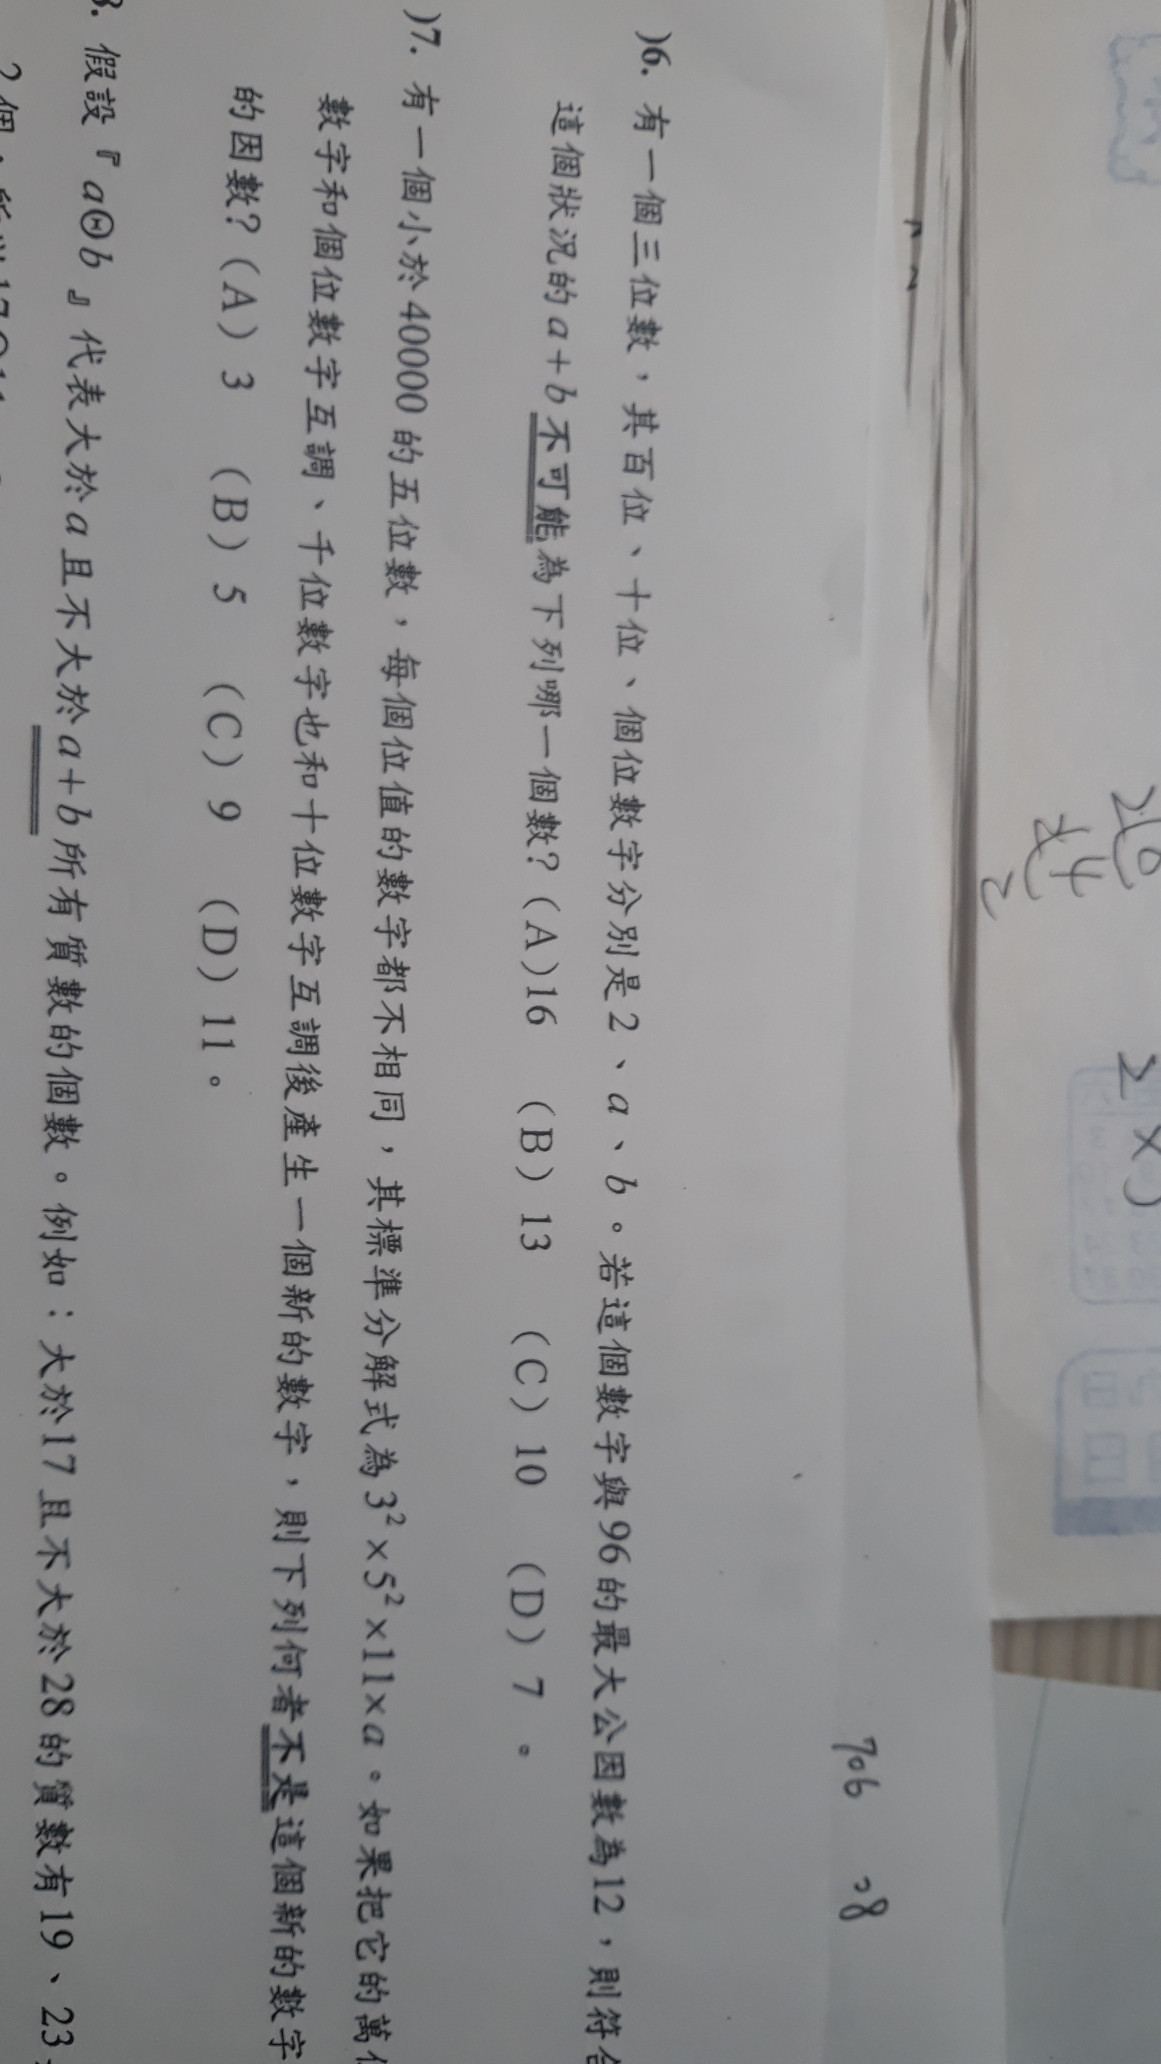 )6. 有一個三位數，其百位、十位、個位數字分別是2、a、b。若這個數字與96的最大公因數為12，則符合
這個狀況的a+b不可能為下列哪一個數？(A)16 (B)13 (C)10 (D)7 。
)7. 有一個小於40000的五位數，每個位值的數字都不相同，其標準分解式為3²×5²×11×a。如果把它的萬位
數字和個位數字互調、千位數字也和十位數字互調後產生一個新的數字，則下列何者不是這個新的數字
的因數？(A)3 (B)5 (C)9 (D)11。
3. 假設『a⊙b』代表大於a且不大於a+b所有質數的個數。例如：大於17且不大於28的質數有19、23
2個，所以17⊙11
706 28